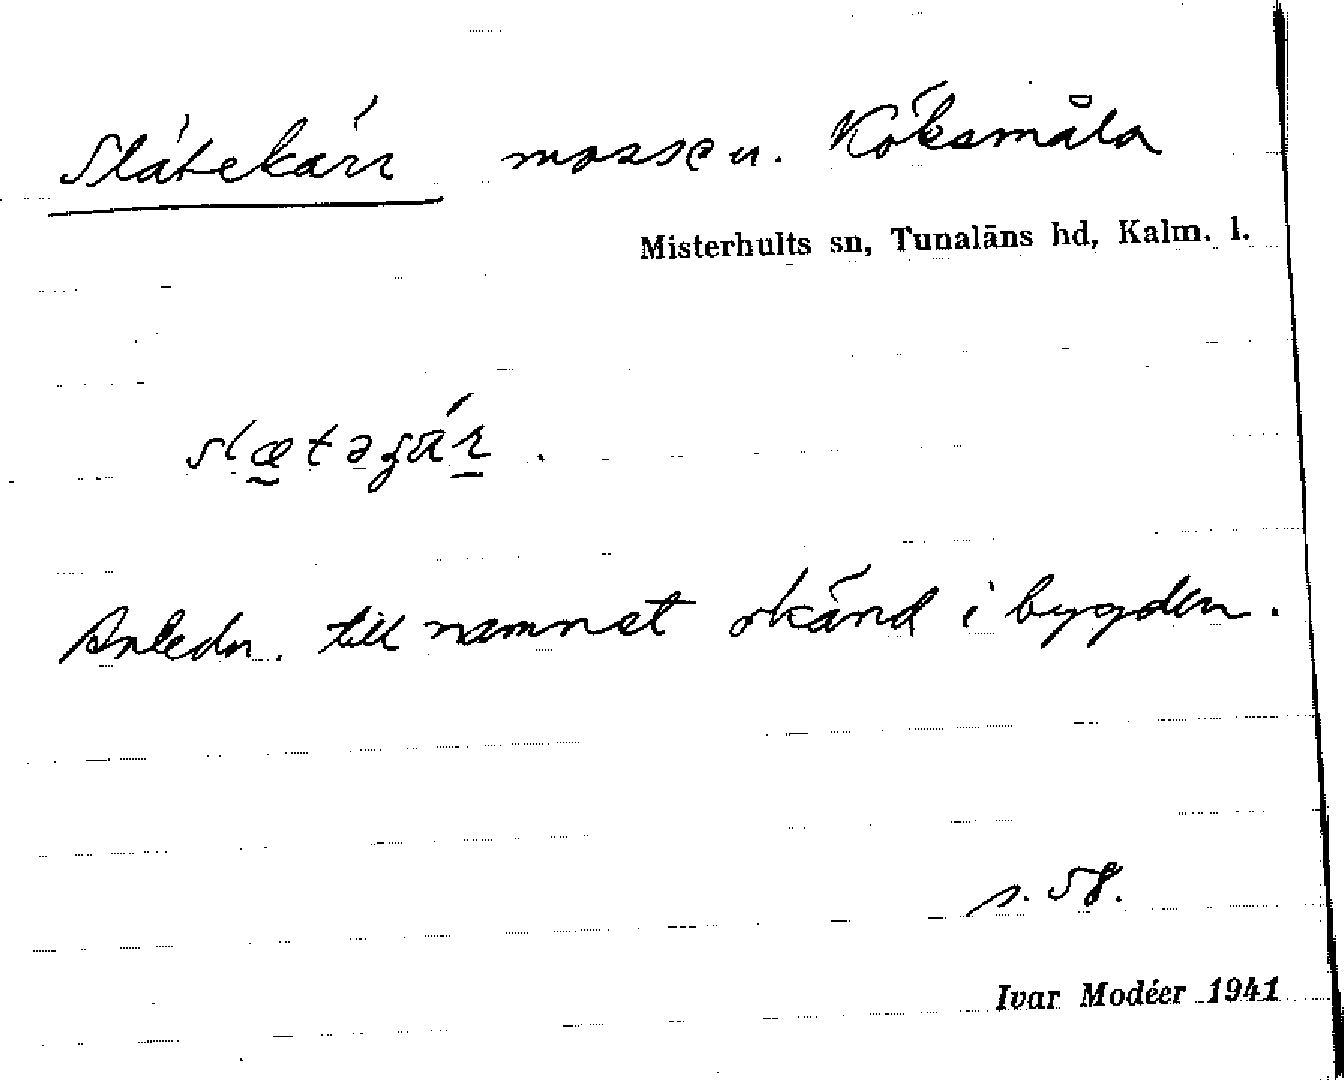 Slätekärr mosse u. Köksmåla
Misterhults sn, Tunaläns hd, Kalm. l.
Anledn. till namnet okänd i bygden.
s. 58.
Ivar Modéer 1941